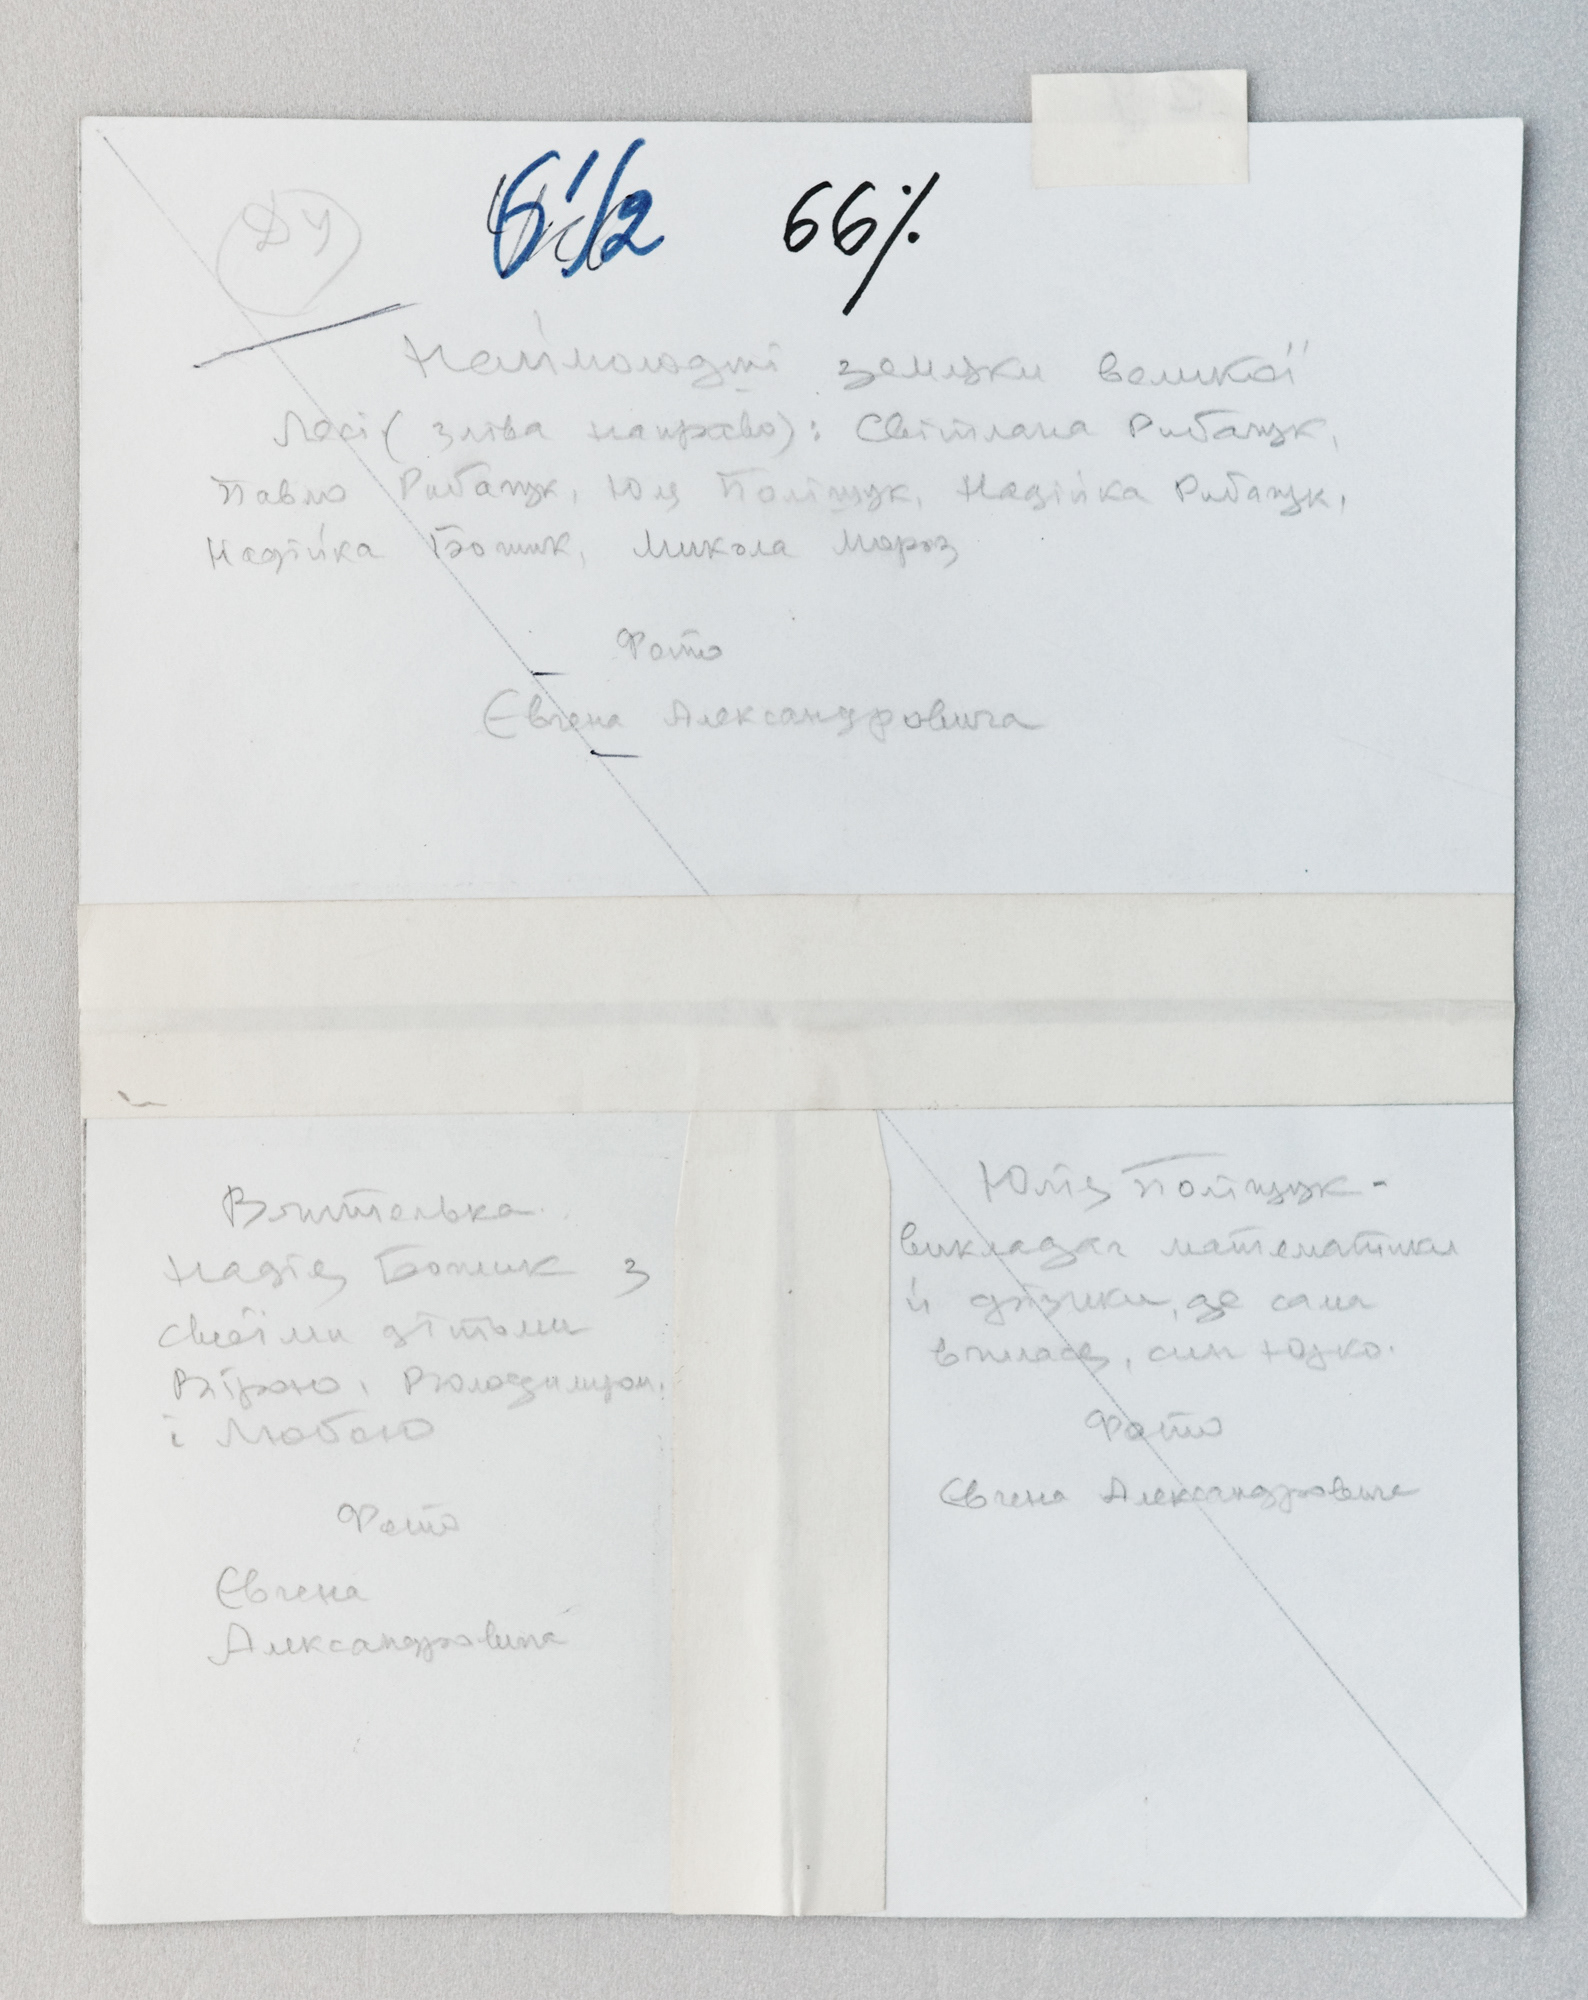 ДУ
6 1/2 66%
Наймолодші земляки великої
Лесі (зліва направо): Світлана Рибачук,
Павло Рибачук, Юля Поліщук, Надійка Рибачук,
Надійка Божик, Микола Мороз
Фото
Євгена Александровича
Вчителька
Надія Божик з
своїми дітьми
Вірою, Володимиром
і Любою
Фото
Євгена
Александровича
Юлія Поліщук -
викладач математики
й фізики, де сама
вчилася, син Юрко.
Фото
Євгена Александровича